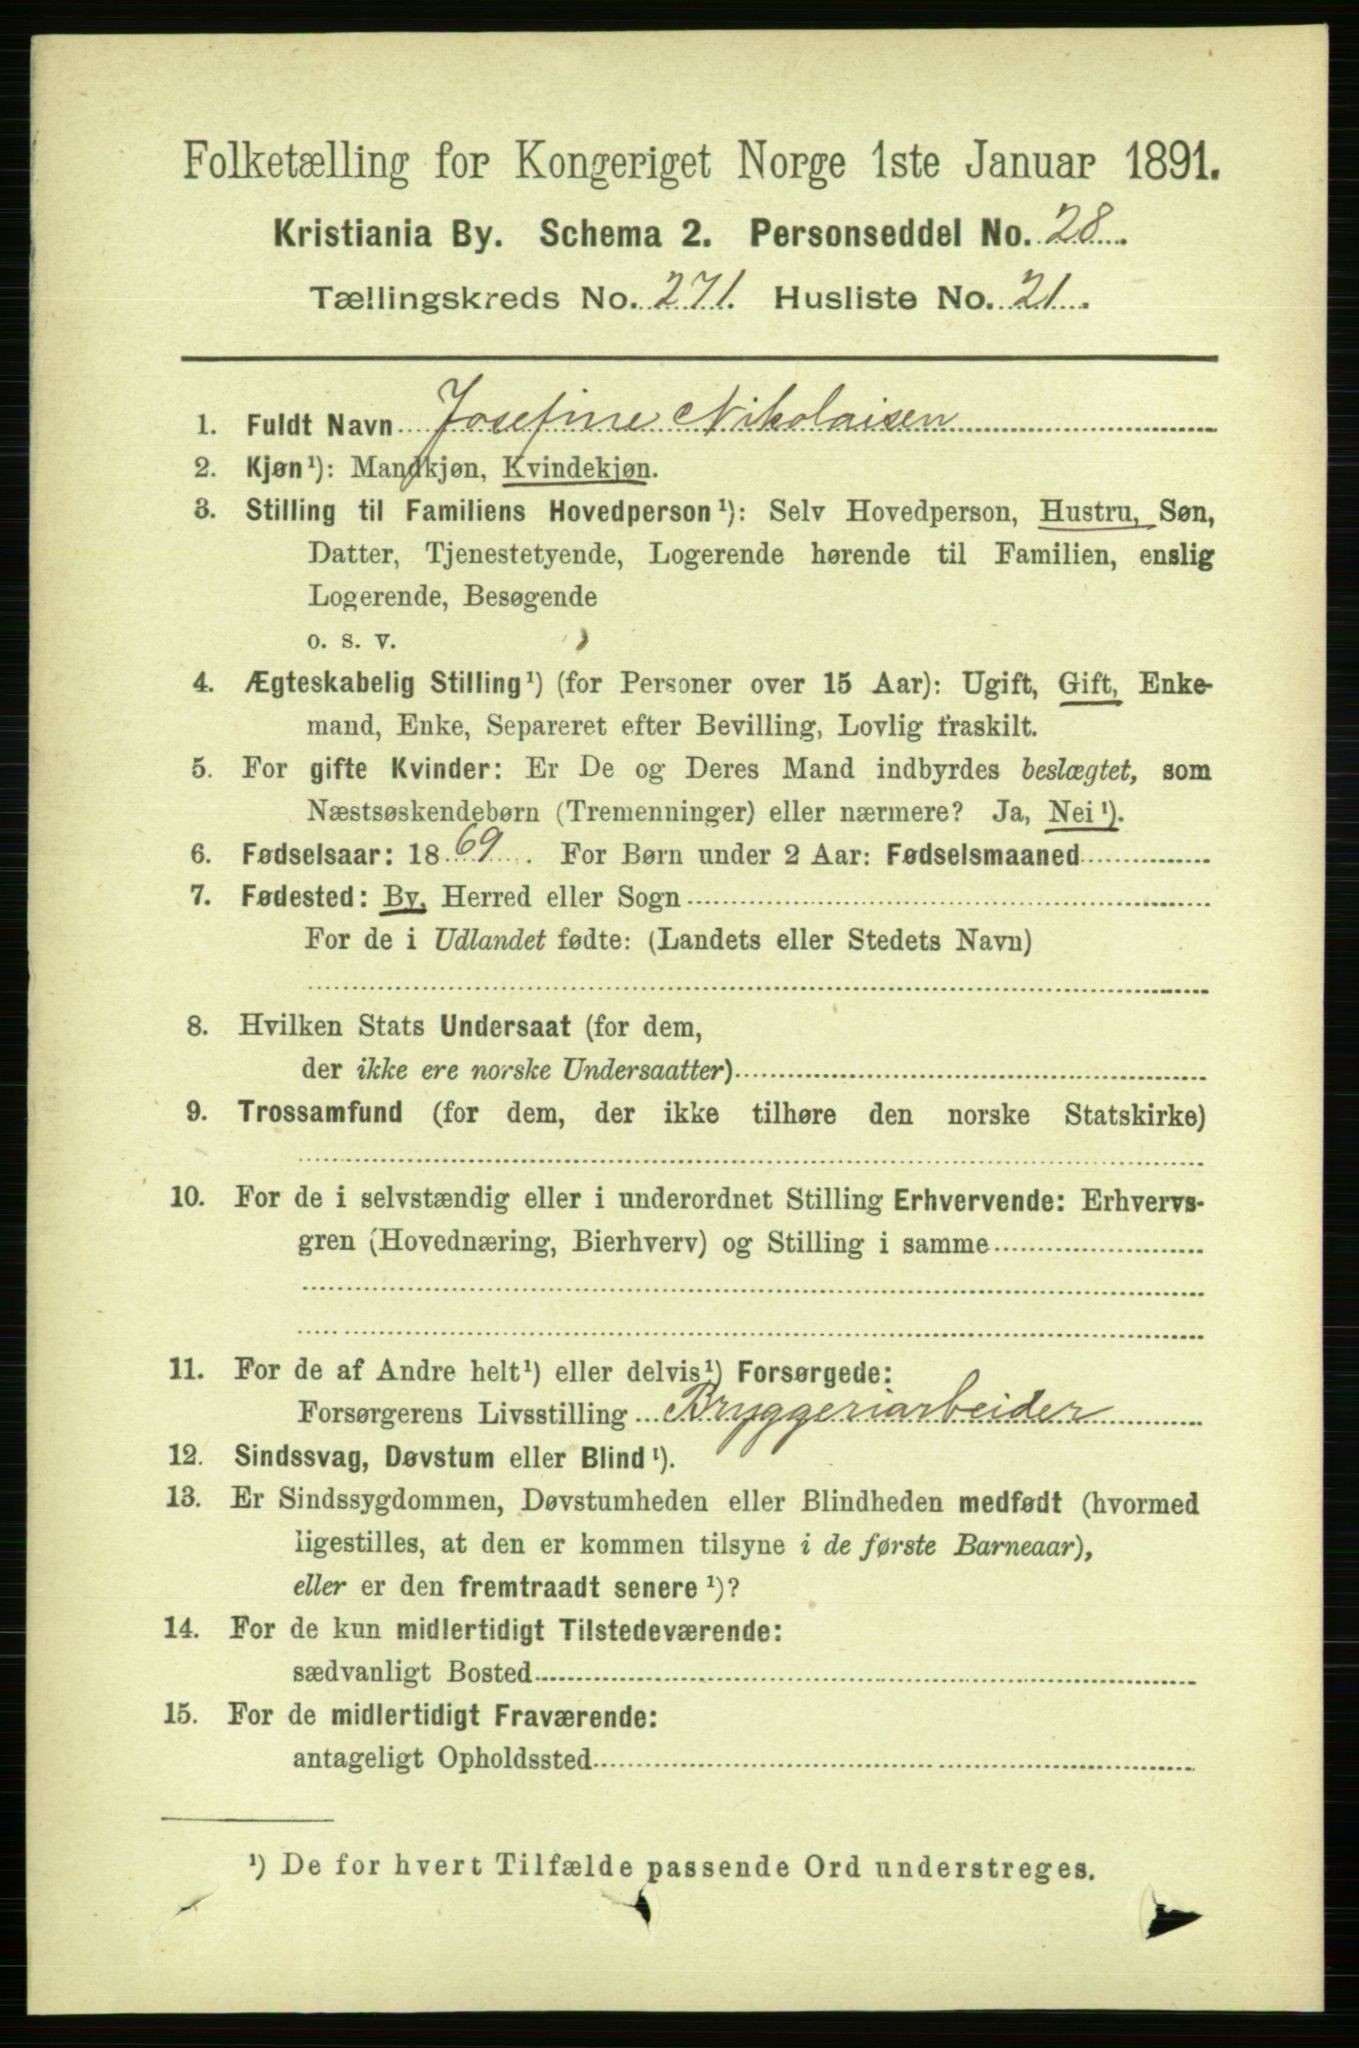 Folketælling for Kongeriget Norge 1ste Januar 1891.
Kristiania By. Schema 2. Personseddel No. 28.
Tællingskreds No. 271. Husliste No. 21.
1. Fuldt Navn Josefine Nikolaisen
2. Kjøn¹): Mandkjøn, Kvindekjøn.
3. Stilling til Familiens Hovedperson¹): Selv Hovedperson, Hustru, Søn,
Datter, Tjenestetyende, Logerende hørende til Familien, enslig
Logerende, Besøgende
o. s. v.
4. Ægteskabelig Stilling¹) (for Personer over 15 Aar): Ugift, Gift, Enke-
mand, Enke, Separeret efter Bevilling, Lovlig fraskilt.
5. For gifte Kvinder: Er De og Deres Mand indbyrdes beslægtet, som
Næstsøskendebørn (Tremenninger) eller nærmere? Ja, Nei¹).
6. Fødselsaar: 1869. For Børn under 2 Aar: Fødselsmaaned
7. Fødested: By, Herred eller Sogn
For de i Udlandet fødte: (Landets eller Stedets Navn)
8. Hvilken Stats Undersaat (for dem,
der ikke ere norske Undersaatter)
9. Trossamfund (for dem, der ikke tilhøre den norske Statskirke)
10. For de i selvstændig eller i underordnet Stilling Erhvervende: Erhvervs-
gren (Hovednæring, Bierhverv) og Stilling i samme
11. For de af Andre helt¹) eller delvis¹) Forsørgede:
Forsørgerens Livsstilling Bryggeriarbeider
12. Sindssvag, Døvstum eller Blind¹).
13. Er Sindssygdommen, Døvstumheden eller Blindheden medfødt (hvormed
ligestilles, at den er kommen tilsyne i de første Barneaar),
eller er den fremtraadt senere¹)?
14. For de kun midlertidigt Tilstedeværende:
sædvanligt Bosted
15. For de midlertidigt Fraværende:
antageligt Opholdssted
¹) De for hvert Tilfælde passende Ord understreges.